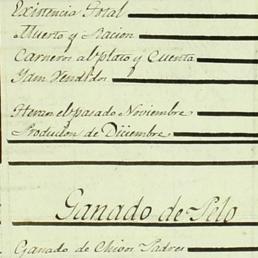 Existencia Total
Muerto y Racion
Carneros al plato y Cuenta
Ydm Vendidos
Herzos el pasado Noviembre
Producion de Diciembre
Ganado de Pelo
Ganado de Chivos Padres